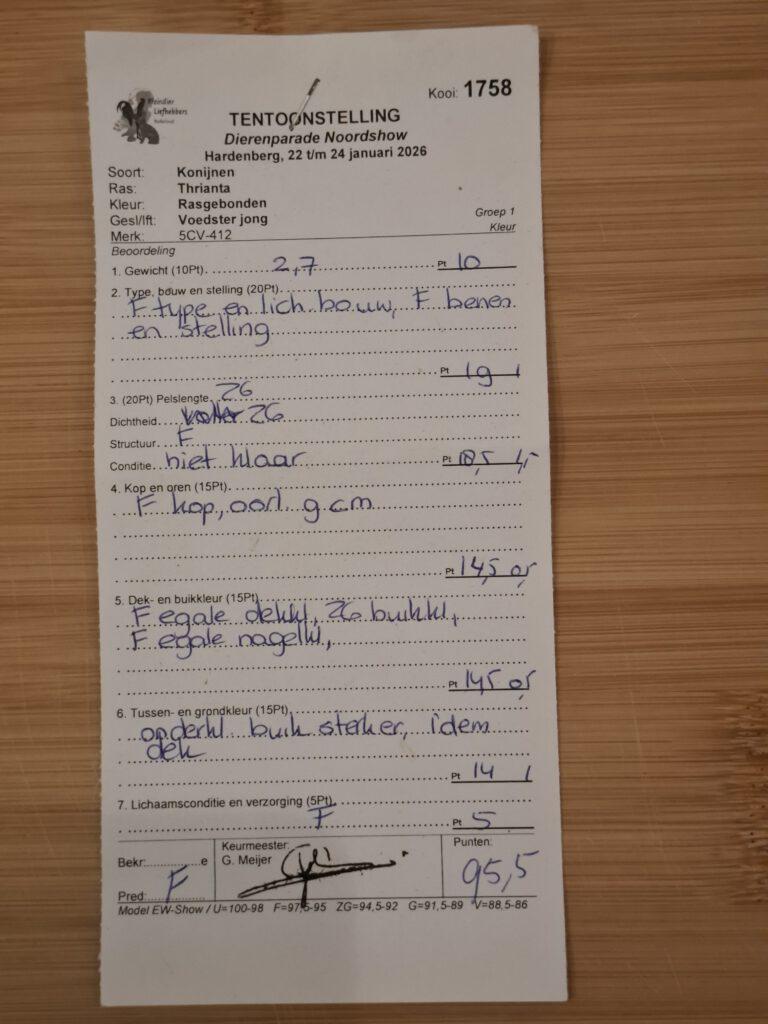 Kleindier
Liefhebbers
Nederland
Kooi: 1758
TENTOONSTELLING
Dierenparade Noordshow
Hardenberg, 22 t/m 24 januari 2026
Soort: Konijnen
Ras: Thrianta
Kleur: Rasgebonden
Gesl/lft: Voedster jong
Groep 1
Merk: 5CV-412
Kleur
Beoordeling
1. Gewicht (10Pt). 2,7 Pt 10
2. Type, bouw en stelling (20Pt).
F type en lich bouw, F benen
en stelling
Pt 19 1
3. (20Pt) Pelslengte ZG
Dichtheid ZG
Structuur. F
Conditie niet klaar Pt 18,5 1,5
4. Kop en oren (15Pt).
F kop, oorl. 9 cm
Pt 14,5 0,5
5. Dek- en buikkleur (15Pt)
F egale dekkl, ZG buikkl,
F egale nagelkl,
Pt 14,5 0,5
6. Tussen- en grondkleur (15Pt)
onderkl. buik sterker, idem
dek
Pt 14 1
7. Lichaamsconditie en verzorging (5Pt).
F Pt 5
Bekr: e
Keurmeester:
Punten:
G. Meijer
95,5
Pred: F
Model EW-Show / U=100-98 F=97,5-95 ZG=94,5-92 G=91,5-89 V=88,5-86